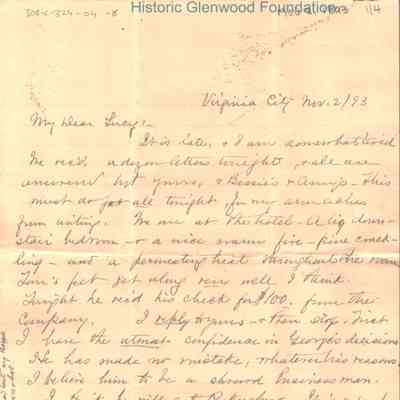 Historic Glenwood Foundation
1/4
Virginia City Nov. 2/93
My Dear Lucy:-
It is late, & I am somewhat tired
We rec'd a dozen letters tonight, & all are
answered but yours, & Bessie's & Amy's - this
must do for all tonight, for my arm aches
from writing. We are at the hotel - A big down-
stair bedroom - & a nice warm fire - pine crack-
ling - and a permeating heat throughout the room
Tom's feet get along very well I think.
Tonight he rec'd his check for $100. from the
Company. I reply to yours - & then stop. First
I have the utmost confidence in George's decisions
He has made no mistake, whatever his reasons
I believe him to be a shrewd businessman.